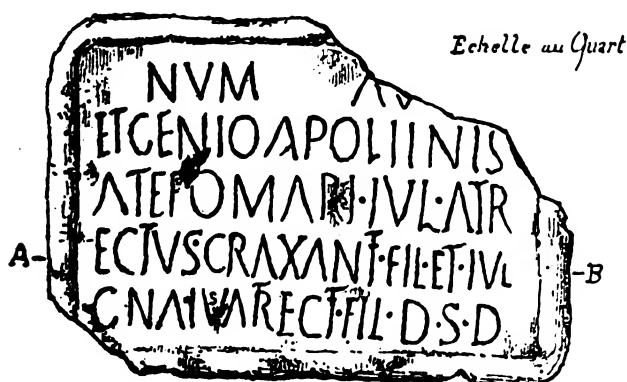 Echelle au Quart
NVM AV
ETGENIOAPOLIINIS
ATEPOMARI·IVL·ATR
A
ECTVSCRAXANT·FIL·ET·IVL
B
C·NAIVSATRECT·FIL·D·S·D